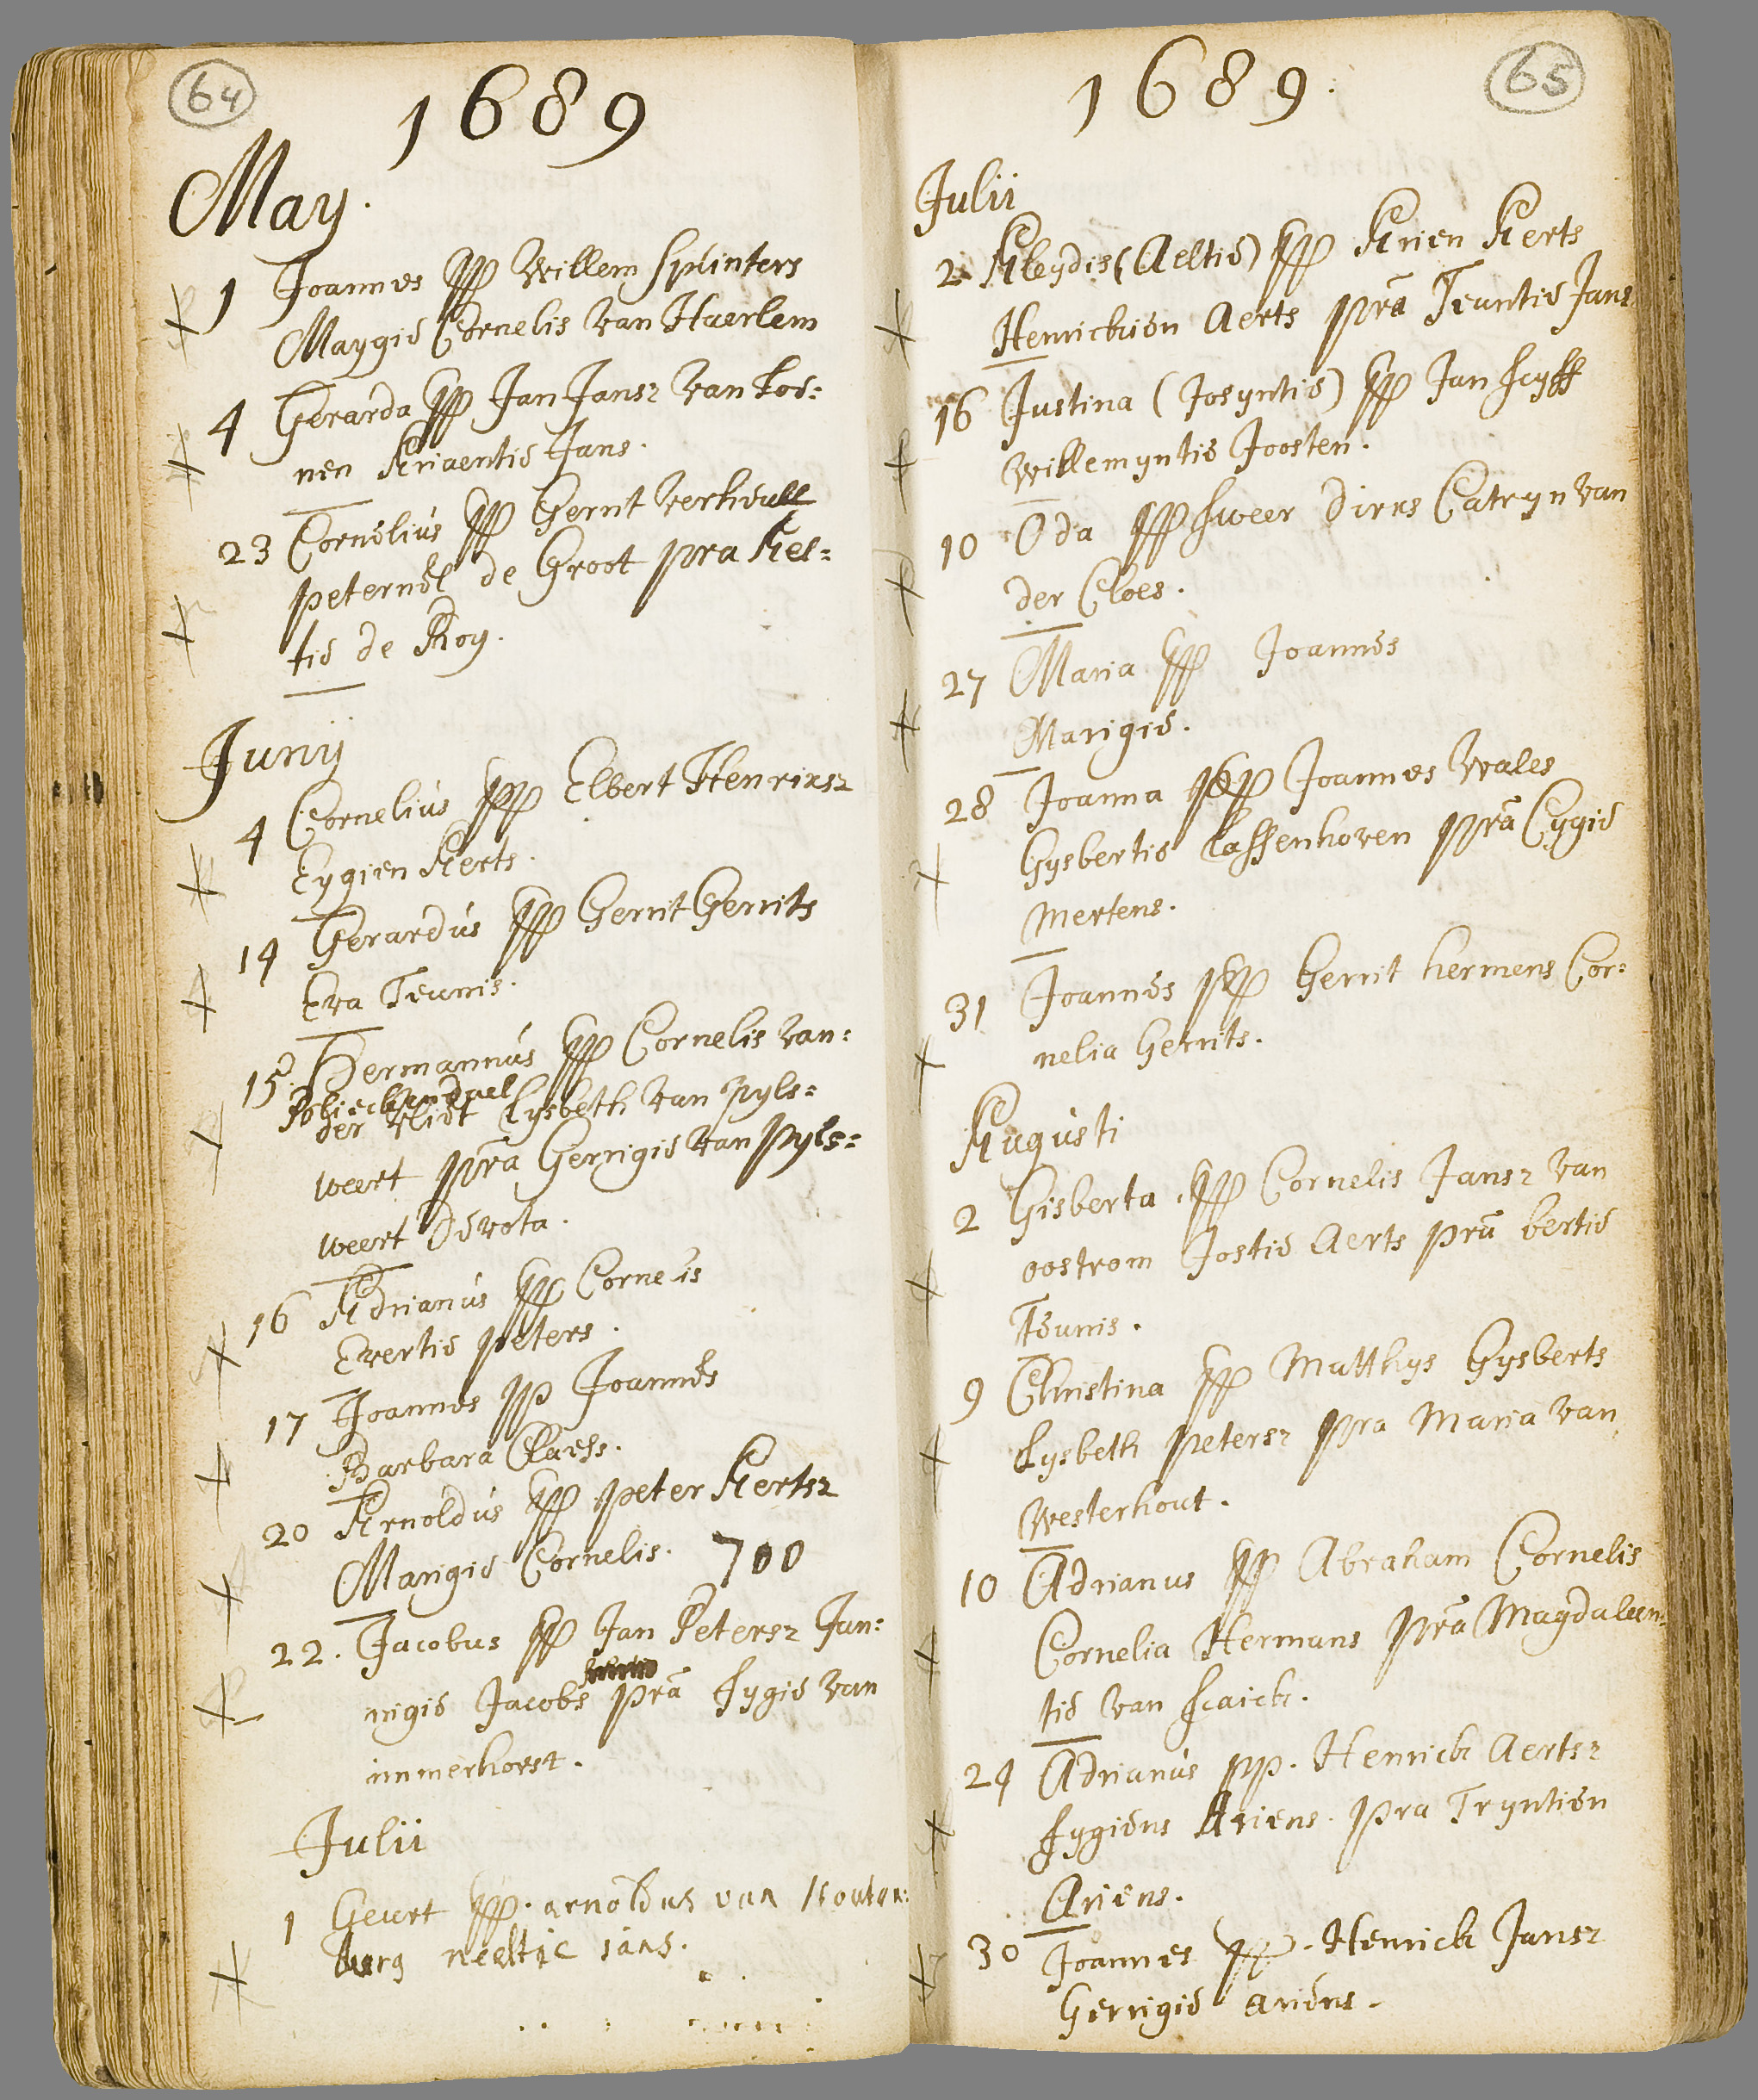 64
1689
May.
1 Joannes ppp Willem Splinters
Maygie Cornelis van Haerlem
4 Gerarda ppp Jan Jansz van Loe=
nen Ariaentie Jans.
23 Cornelius ppp Gerrit Verheull
peternel de Groot pra Ael=
tie de Roy.
Juny
4 Cornelius ppp Elbert Henrixsz
Eygien Aerts.
14 Gerardus ppp Gerrit Gerrits
Eva Teunis.
15. Hermannus ppp Cornelis van=
der Vliet Lysbeth van pyls=
weert pra Gerrigie van pyls=
weert Devota.
16 Adrianus ppp Cornelis
Evertie peters.
17 Joannes pp Joannes
Barbara Claess.
20 Arnoldus ppp peter Aertsz
Marigie Cornelis. 700
22. Jacobus ppp Jan Petersz Jan=
nigie Jacobs pra Fygie van
immerhorst.
Julii
1 Geurt ppp. arnoldus van Houten=
berg neeltie ians.
65
1689.
Julii
2 Aleydis (Aeltie) ppp Arien Aerts
Henrickien Aerts pra Teuntie Jans
16 Justina (Josyntie) ppp Jan Scyff
Willemyntie Joosten.
10 Oda ppp Sweer Dirxs Catryn van
der Cloes.
27 Maria ppp Joannes
Marigie.
28 Joanna ppp Joannes Wales
Gysbertie Cassenhoven pra Cygie
Mertens.
31 Joannes ppp Gerrit hermens Cor=
nelia Gerrits.
Augusti
2 Gisberta ppp Cornelis Jansz van
oostrom Jostie Aerts pra bertie
Teunis.
9 Christina ppp Matthys Gysberts
Lysbeth petersz pra Maria van
Westerhout.
10 Adrianus ppp Abraham Cornelis
Cornelia Hermans pra Magdaleen=
tie van Scaick.
24 Adrianus pp. Henrick Aertsz
Fygiens Ariens. pra Tryntien
Ariens.
30 Joannes pp. Henrick Jansz
Gerrigie ariens.